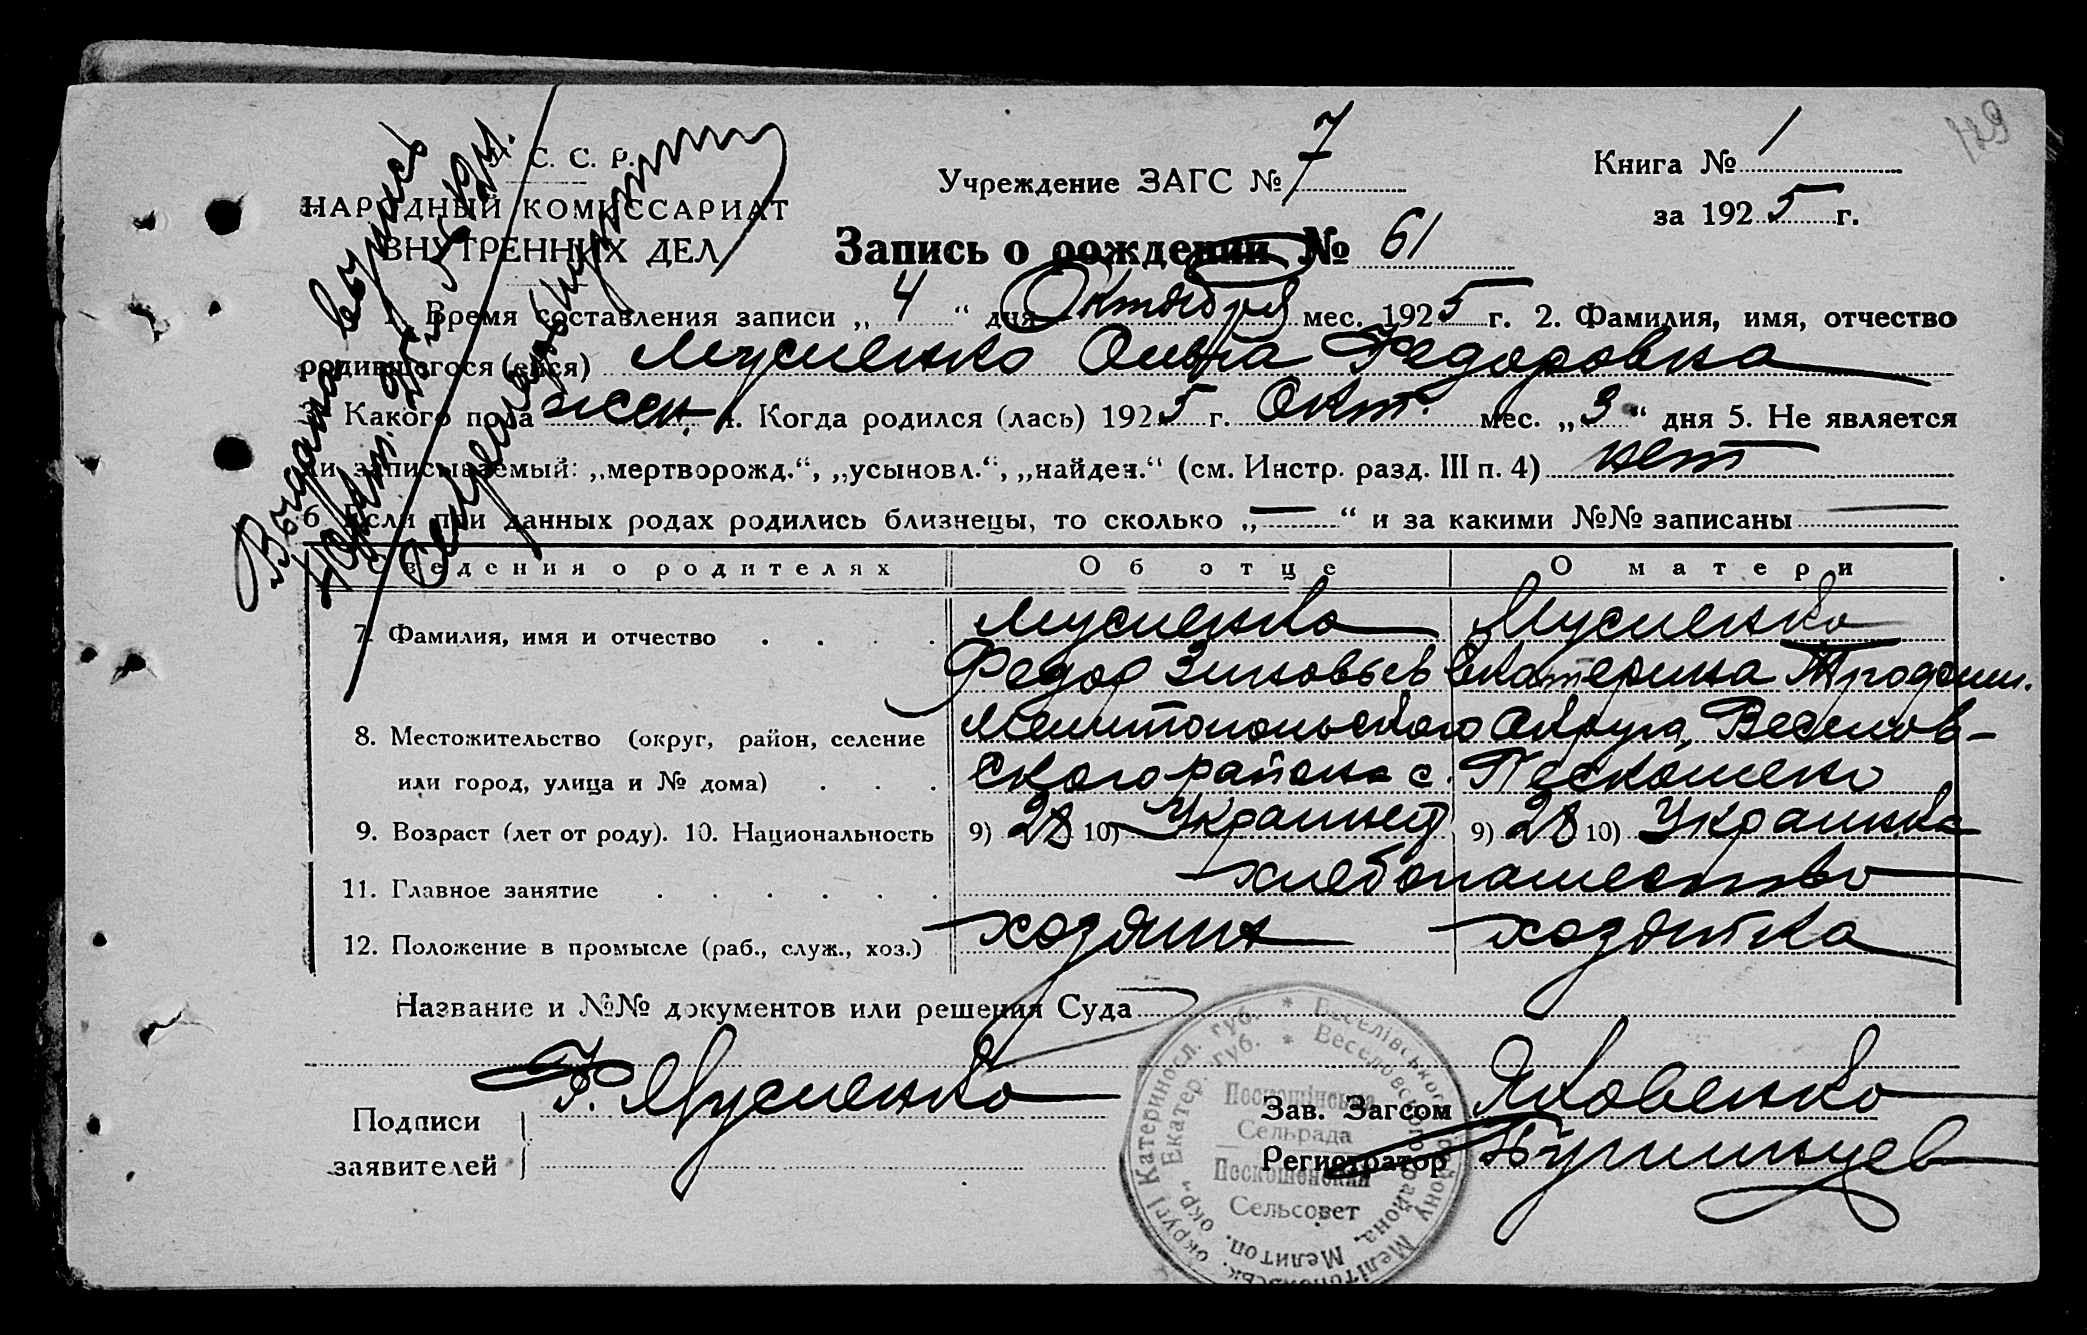 129
С. С. Р.
НАРОДНЫЙ КОМИССАРИАТ
ВНУТРЕННИХ ДЕЛ
Учреждение ЗАГС № 7
Книга № 1
за 1925 г.
Запись о рождении № 61
Выдана выпись
1. Время составления записи „4“ дня Октября мес. 1925 г. 2. Фамилия, имя, отчество
родившегося (ейся) Мусиенко Ольга Федоровна
Какого пола жен. 4. Когда родился (лась) 1925 г. Окт. мес. „3“ дня 5. Не является
ли записываемый: „мертворожд.“, „усыновл.“, „найден.“ (см. Инстр. разд. III п. 4) нет
6 Если при данных родах родились близнецы, то сколько „—“ и за какими №№ записаны —
Сведения о родителях Об отце О матери
7. Фамилия, имя и отчество . . . . Мусиенко Мусиенко
Федор Зиновьев Екатерина
8. Местожительство (округ, район, селение Мелитопольского Округа, Веселов-
или город, улица и № дома) . . . ского района с. Пескошено
9. Возраст (лет от роду). 10. Национальность 9) 28 10) Украинец 9) 28 10) Украинка
11. Главное занятие . . . . . . хлебопашество
12. Положение в промысле (раб., служ., хоз.) хозяин хозяйка
Название и №№ документов или решения Суда
Подписи
заявителей
Ф. Мусиенко
Зав. Загсом Яковенко
Регистратор
Катериносл. губ. * Веселівського району Мелітопольськ. округі
Екатер. губ. * Веселовского района, Мелитоп. окр.
Пескошінська
Сельрада
Пескошенский
Сельсовет